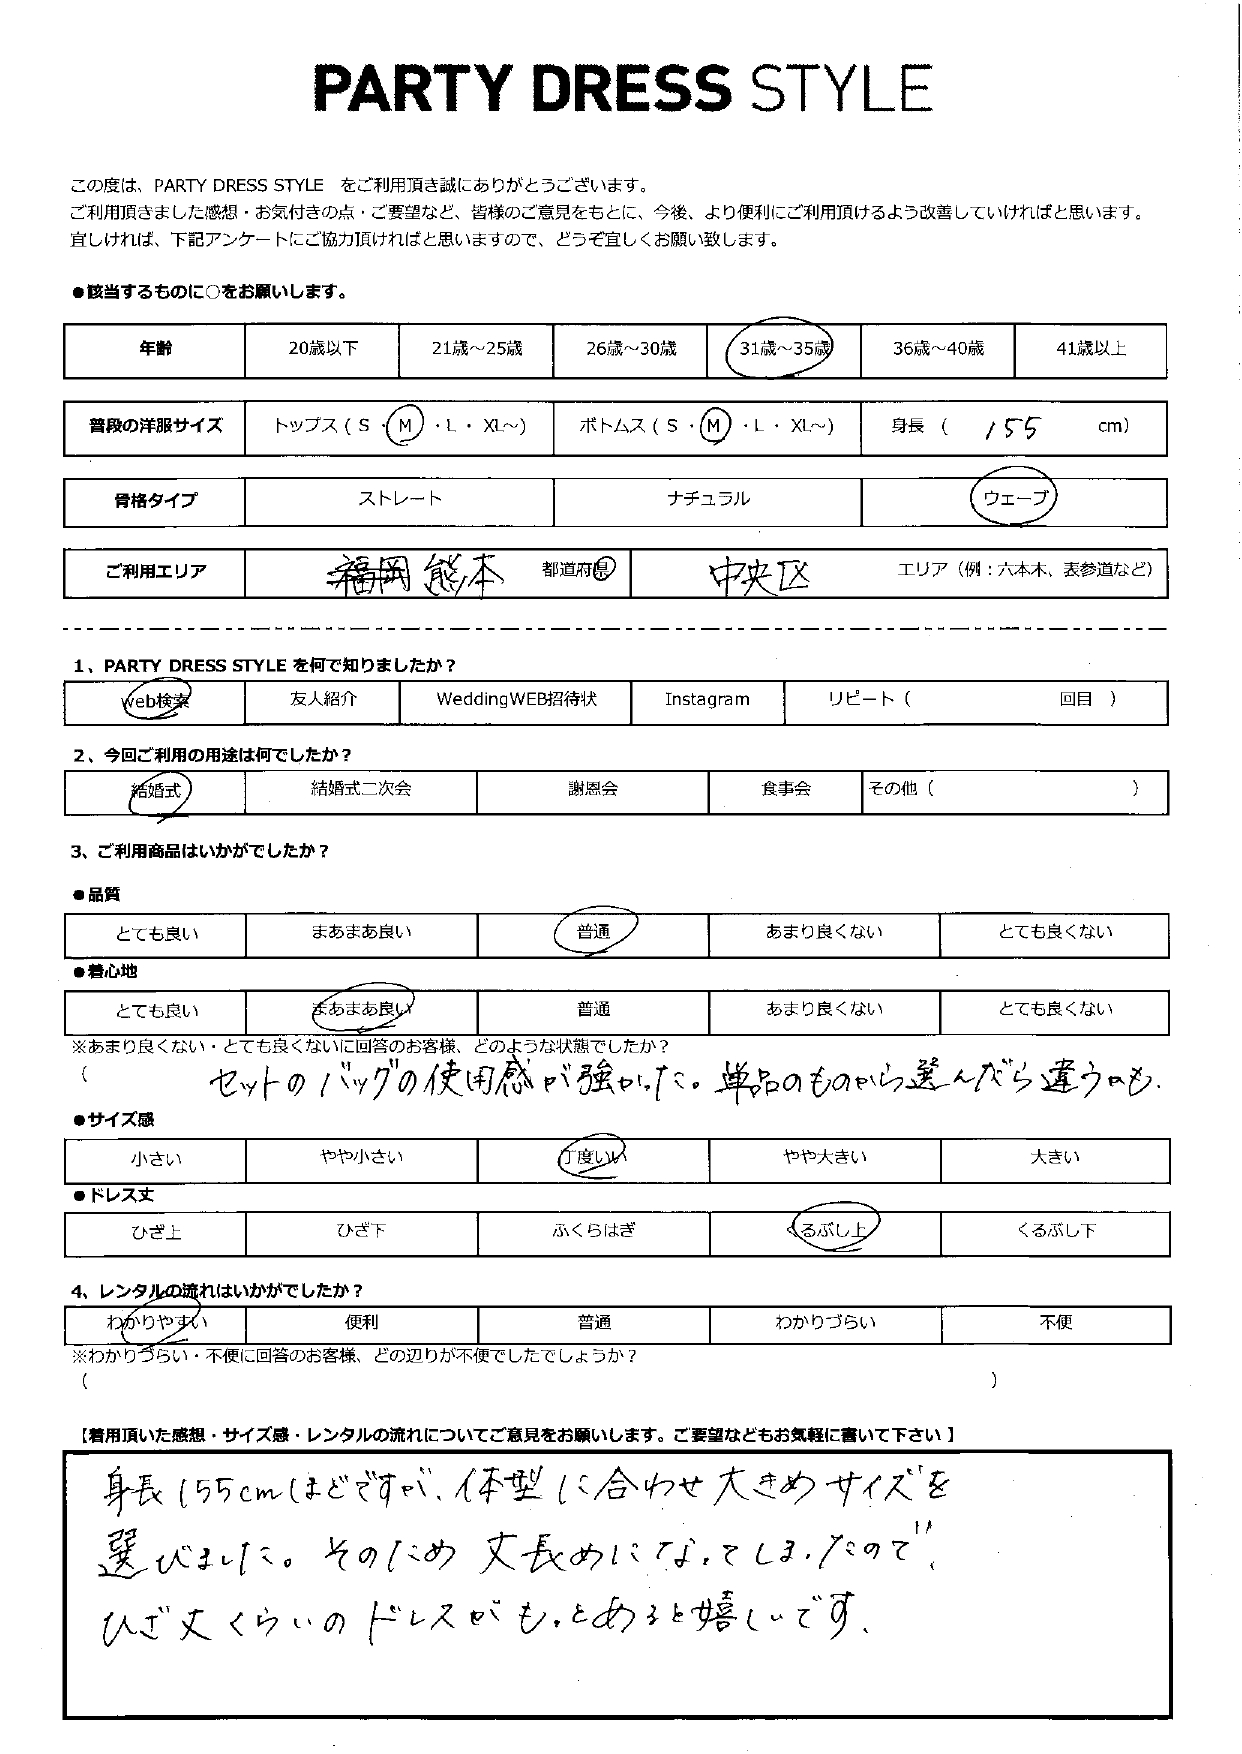 PARTY DRESS STYLE
この度は、PARTY DRESS STYLE　をご利用頂き誠にありがとうございます。
ご利用頂きました感想・お気付きの点・ご要望など、皆様のご意見をもとに、今後、より便利にご利用頂けるよう改善していければと思います。
宜しければ、下記アンケートにご協力頂ければと思いますので、どうぞ宜しくお願い致します。
●該当するものに○をお願いします。
年齢 20歳以下 21歳～25歳 26歳～30歳 31歳～35歳 36歳～40歳 41歳以上
普段の洋服サイズ トップス（ S ・ M ・ L ・ XL～） ボトムス（ S ・ M ・ L ・ XL～） 身長 （ 155 cm）
骨格タイプ ストレート ナチュラル ウェーブ
ご利用エリア 福岡 熊本 都道府県 中央区 エリア（例：六本木、表参道など）
1、PARTY DRESS STYLE を何で知りましたか？
web検索 友人紹介 WeddingWEB招待状 Instagram リピート（ 回目 ）
2、今回ご利用の用途は何でしたか？
結婚式 結婚式二次会 謝恩会 食事会 その他（ ）
3、ご利用商品はいかがでしたか？
●品質
とても良い まあまあ良い 普通 あまり良くない とても良くない
●着心地
とても良い まあまあ良い 普通 あまり良くない とても良くない
※あまり良くない・とても良くないに回答のお客様、どのような状態でしたか？
（ セットのバッグの使用感が強かった。単品のものから選んだら違うのも.
●サイズ感
小さい やや小さい 丁度いい やや大きい 大きい
●ドレス丈
ひざ上 ひざ下 ふくらはぎ くるぶし上 くるぶし下
4、レンタルの流れはいかがでしたか？
わかりやすい 便利 普通 わかりづらい 不便
※わかりづらい・不便に回答のお客様、どの辺りが不便でしたでしょうか？
（ ）
【着用頂いた感想・サイズ感・レンタルの流れについてご意見をお願いします。ご要望などもお気軽に書いて下さい】
身長155cmほどですが、体型に合わせ大きめサイズを
選びました。そのため丈長めになってしまったので、
ひざ丈くらいのドレスがもっとあると嬉しいです.